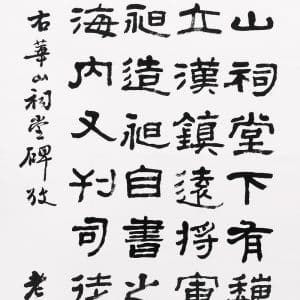 山祠堂下有魏
立漢鎮遠將軍
昶造昶自書之
海内又刊司徒
右華山祠堂碑攷 老